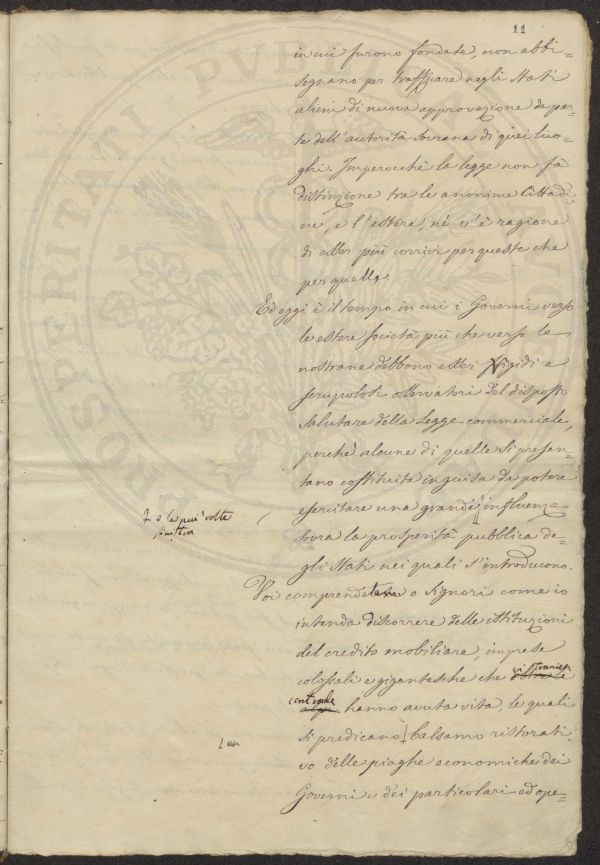 11
in cui furono fondate, non abbi=
sognano per trafficare negli Stati
alieni di nuova approvazione da par=
te dell'autorità sovrana di quei luo=
ghi. Imperocchè la legge non fà
distinzione tra le anonime cittadi=
ne, e l'estere, nè v'è ragione
di esser più corrivi per queste che
per quelle.
Ed oggi è il tempo in cui i Governi verso
le estere società più che verso le
nostrane debbono esser rigidi e
scrupolosi osservatori del disposto
salutare della Legge commerciale,
perchè alcune di quelle si presen=
tano costituite in guisa da potere
esercitare una grande influenza
e le più volte
sovra la prosperità pubblica de=
gli Stati nei quali s'introducono.
Voi comprendete o Signori come io
intenda discorrere delle istituzioni
del credito mobiliare, imprese
colossali e gigantesche che oltre le
alpi hanno avuta vita, le quali
si predicano balsamo ristorati=
un
vo delle piaghe economiche dei
Governi e dei particolari ed ope=
PROSPERITATI PUB